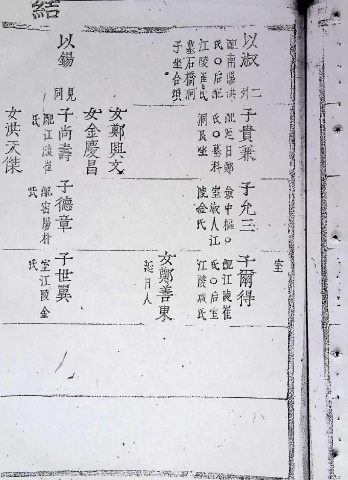 結
室
以淑
二
配南陽洪
氏〇后配
江陵崔氏
墓石橋洞
子坐合墳
子貴兼
配延日鄭
氏〇墓科
洞艮坐
子允三
僉中樞〇
室淑人江
陵金氏
子爾得
配江陵崔
氏〇后室
江陵咸氏
女鄭善東
延日人
女鄭興文
女金慶昌
以錫
見
同
子尚壽
配江陵崔
氏
子德章
配密陽朴
氏
子世翼
室江陵金
氏
女洪天傑